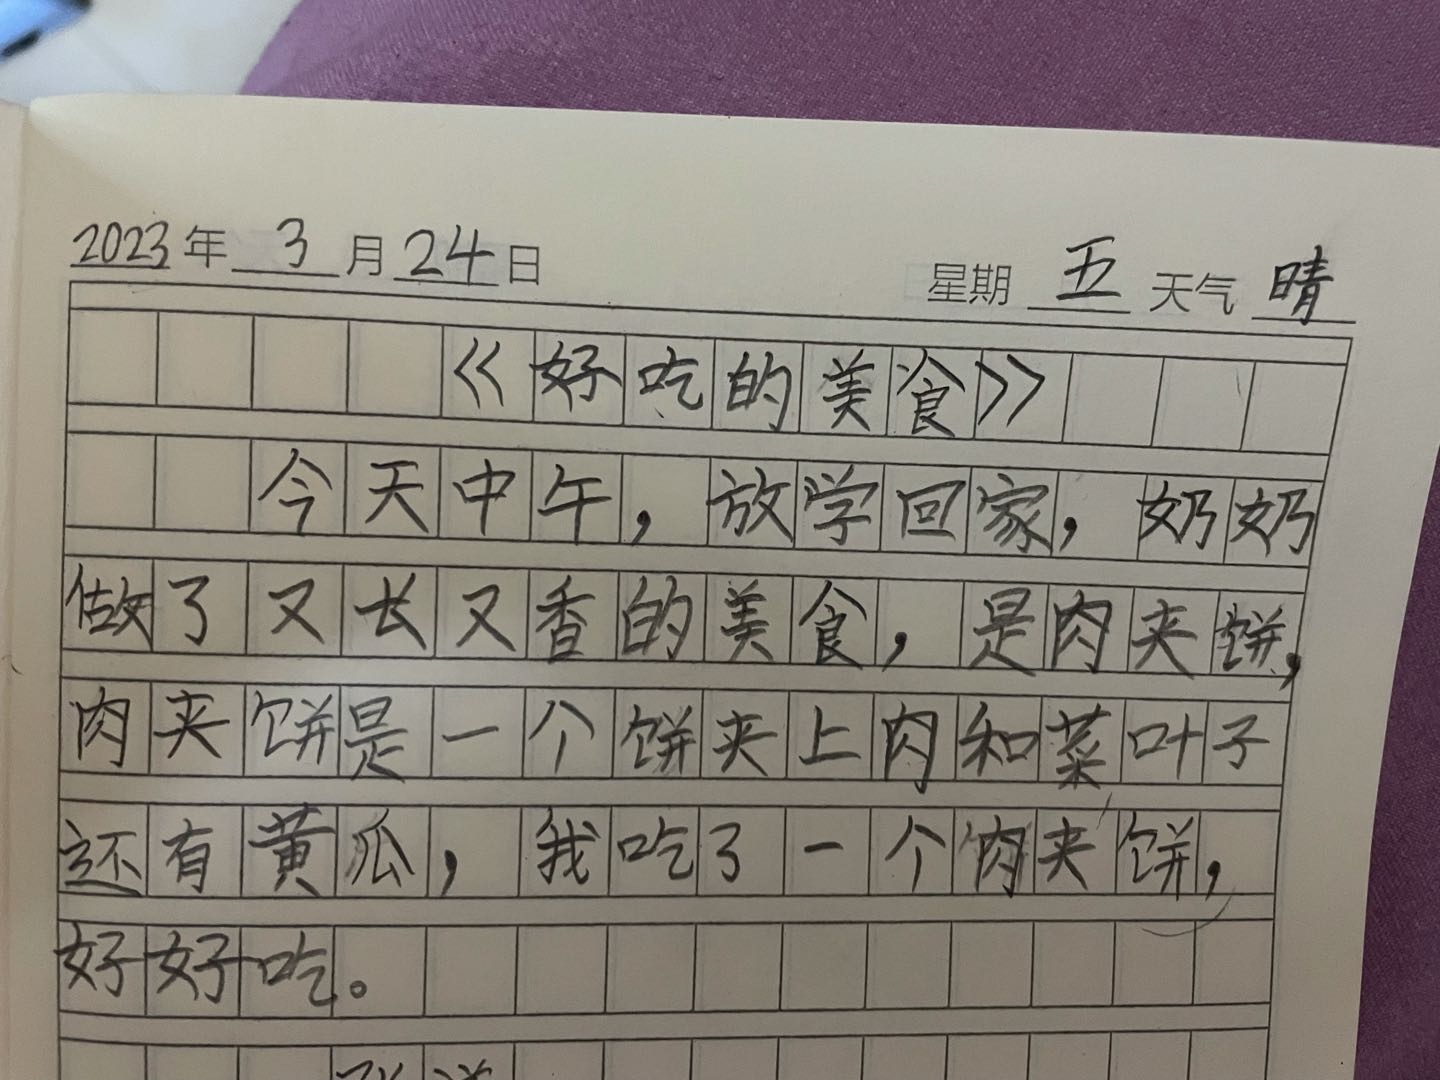 2023年3月24日 星期五 天气晴
《好吃的美食》
今天中午，放学回家，奶奶
做了又长又香的美食，是肉夹饼，
肉夹饼是一个饼夹上肉和菜叶子
还有黄瓜，我吃了一个肉夹饼，
好好吃。